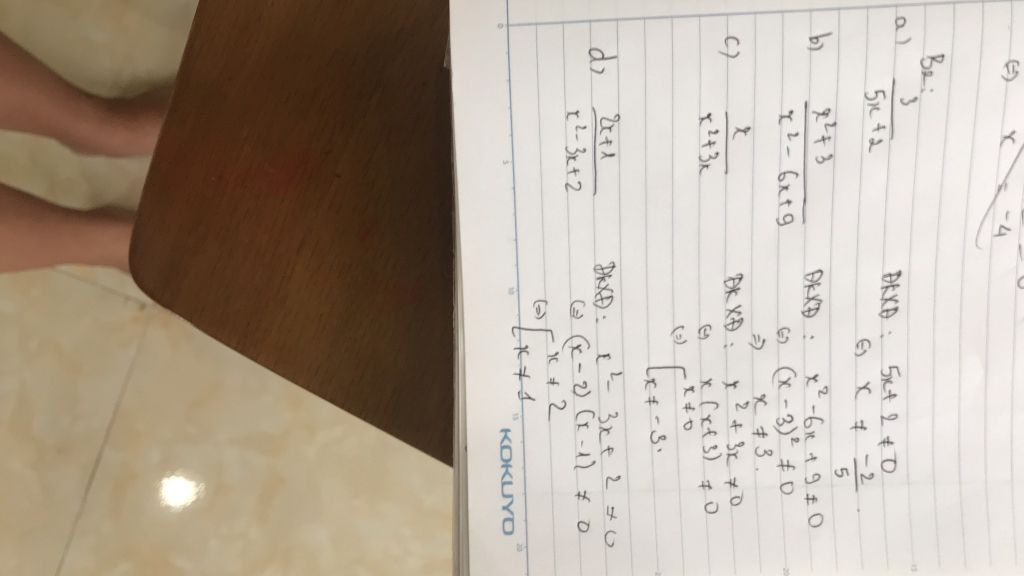 (=) x = -4
B2:
a) 3/(5x+2) ĐKXĐ: 5x+2 ≠ 0
(=) x ≠ -2/5
b) (x²+3)/(x²-6x+9) ĐKXĐ: x²-6x+9 ≠ 0
(=) (x-3)² ≠ 0
=) x ≠ 3.
c) x/(x²+3x) ĐKXĐ: x²+3x ≠ 0
(=) x(x+3) ≠ 0
(=) [ x ≠ 0
x ≠ -3.
d) (2x+1)/(x²-3x+2) ĐKXĐ: x²-3x+2 ≠ 0
(=) (x-2)(x-1) ≠ 0
(=) [ x ≠ 2
x ≠ 1
KOKUYO